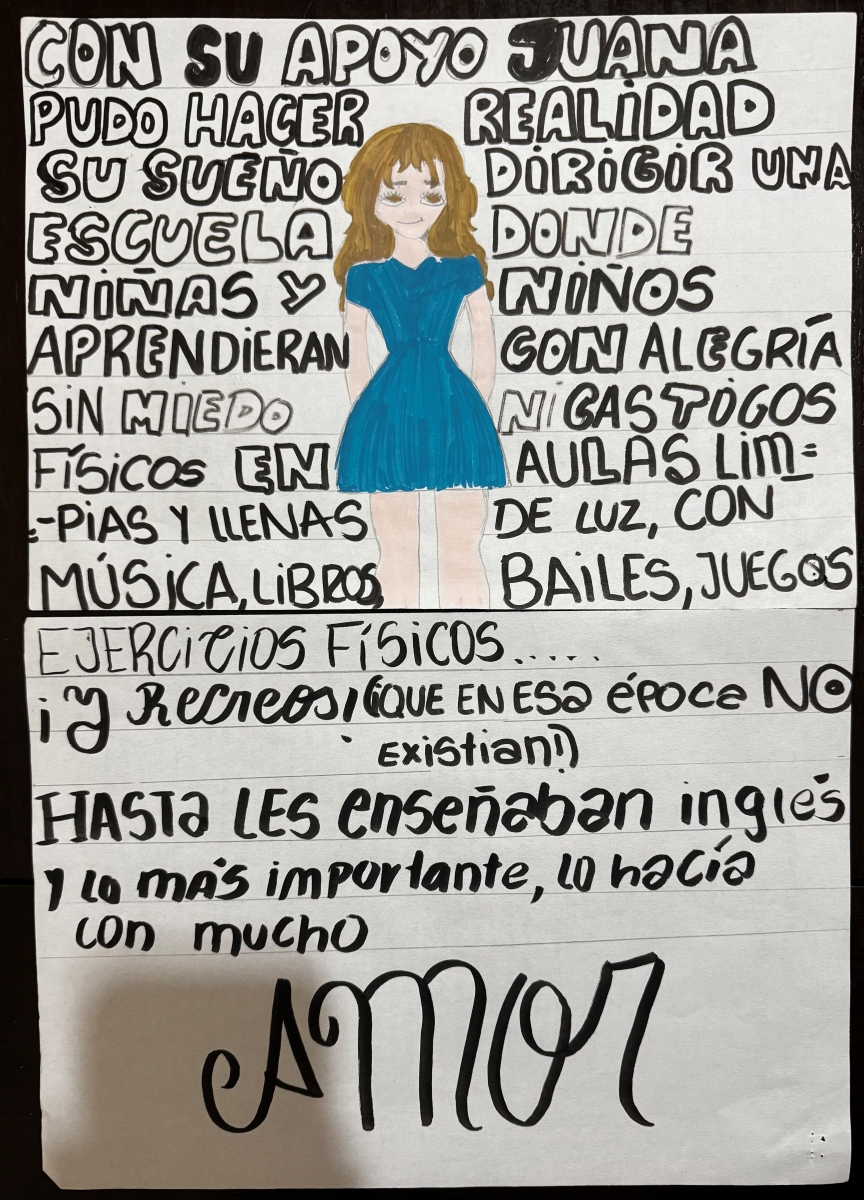 CON SU APOYO JUANA
PUDO HACER REALIDAD
SU SUEÑO DIRIGIR UNA
ESCUELA DONDE
NIÑAS Y NIÑOS
APRENDIERAN CON ALEGRÍA
SIN MIEDO NI CASTIGOS
FÍSICOS EN AULAS LIM=
-PIAS Y LLENAS DE LUZ, CON
MÚSICA, LIBROS, BAILES, JUEGOS
EJERCICIOS FÍSICOS.....
¡Y Recreos! (QUE EN ESa época NO
existian!)
HASTa LES enseñaban inglés
y lo más importante, lo hacía
con mucho
AMOr